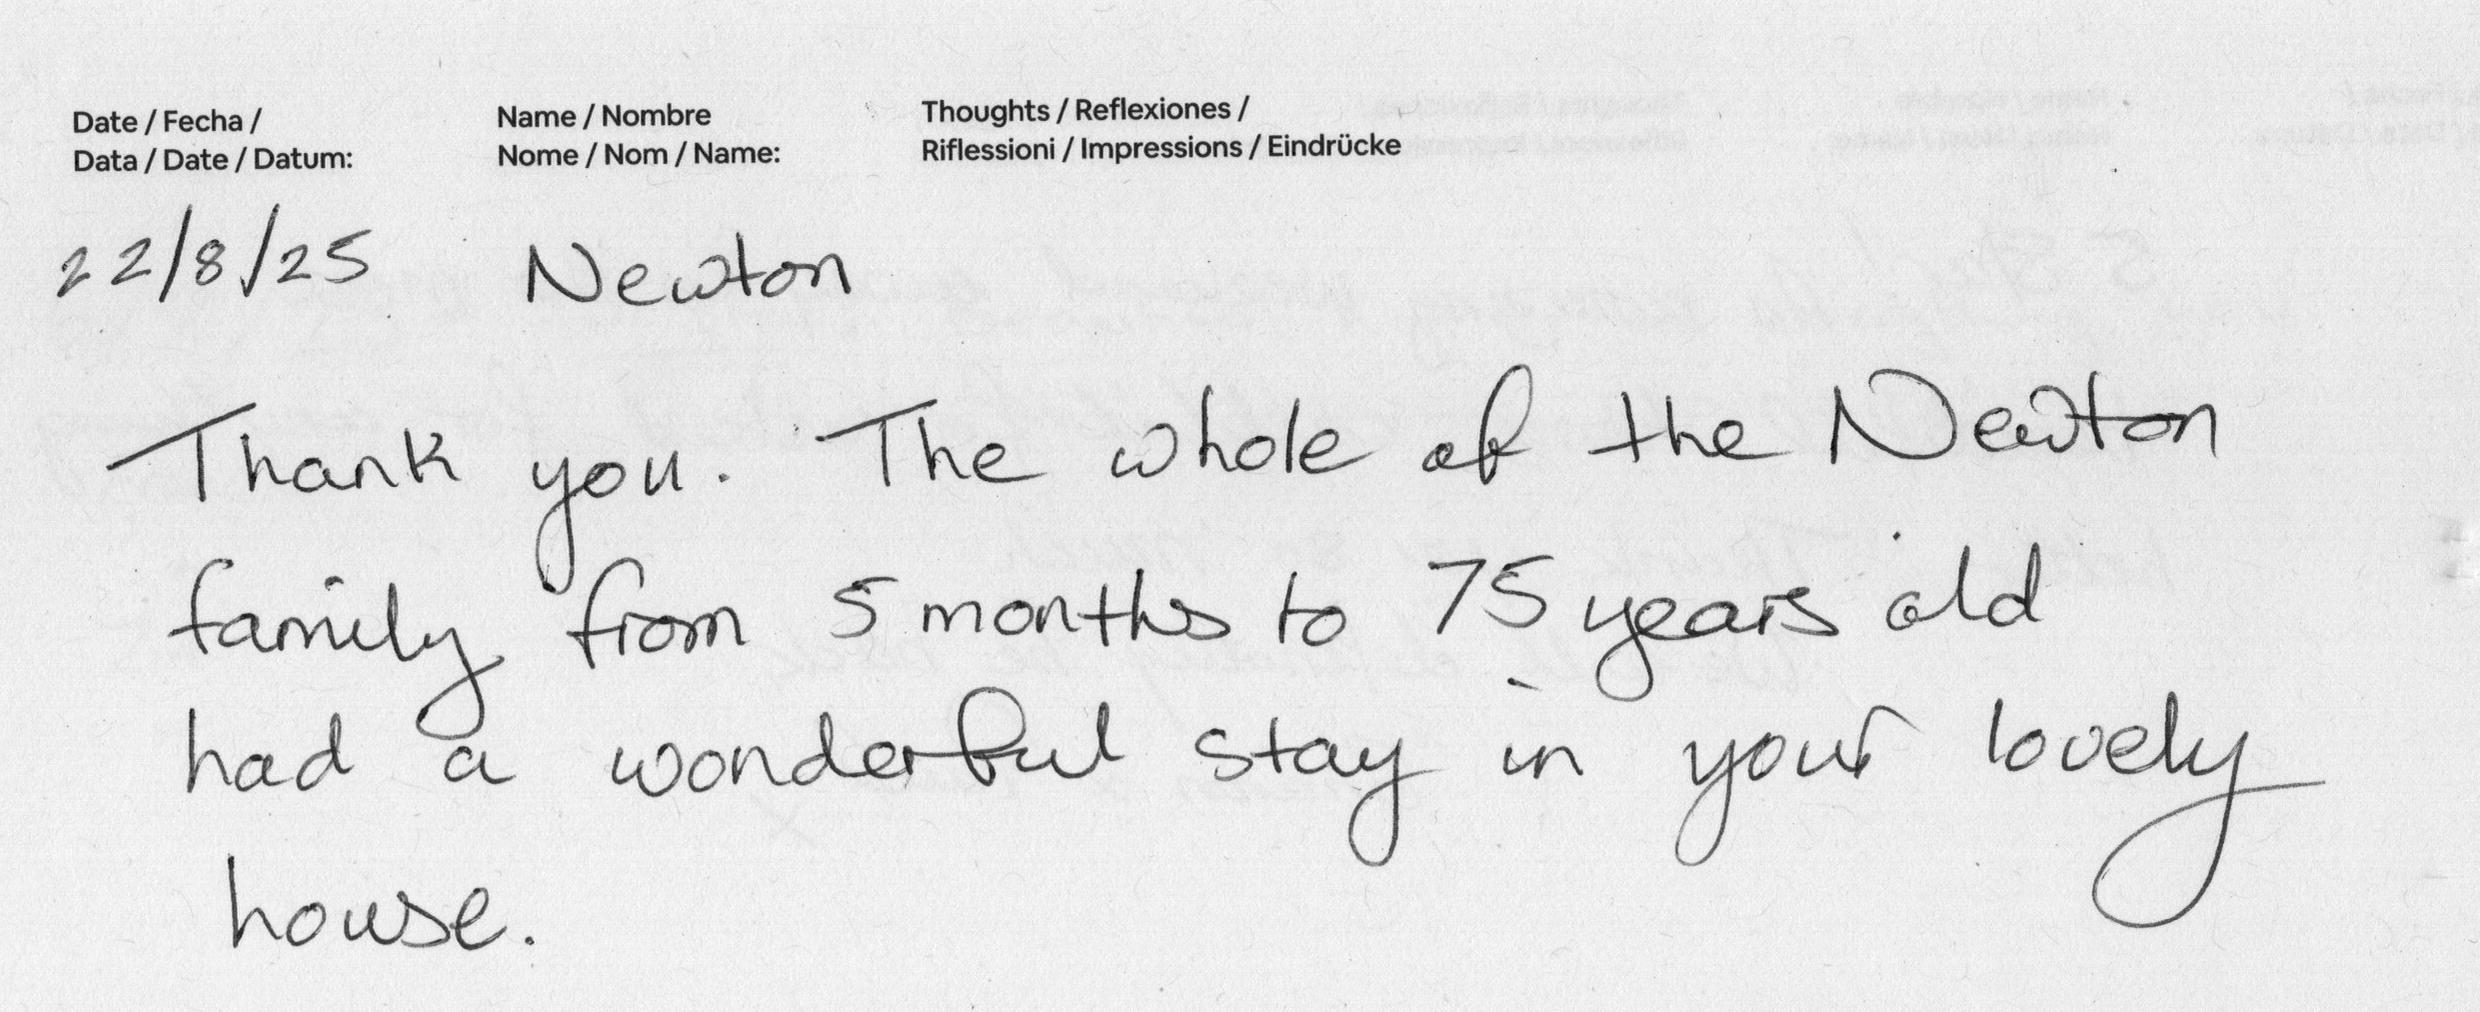 Date / Fecha /
Data / Date / Datum:
Name / Nombre
Nome / Nom / Name:
Thoughts / Reflexiones /
Riflessioni / Impressions / Eindrücke
22/8/25 Newton
Thank you. The whole of the Newton
family from 5 months to 75 years old
had a wonderful stay in your lovely
house.